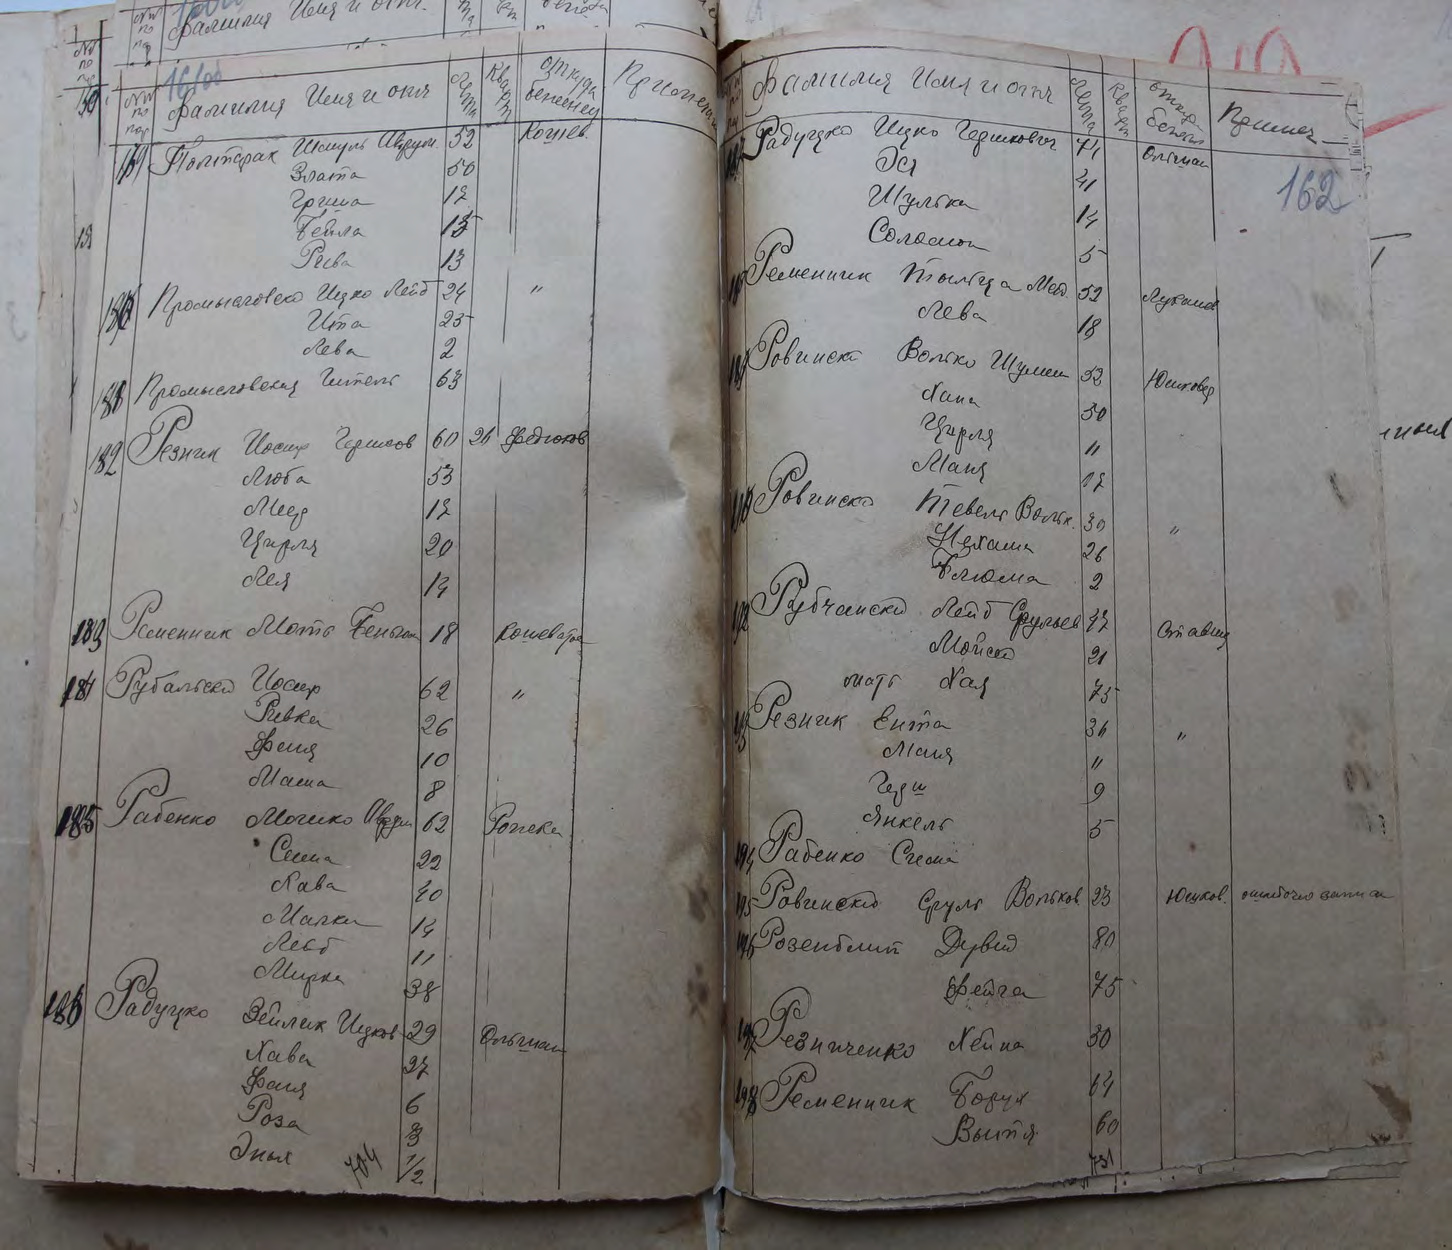 Фамилия Имя и отч.
№№ по пор
Фамилия Имя и отч
Лета
Кварт
откуда беженец
Полиграх Шмуль Аврум. 52 Кошев
Злата 50
Гриша 17
Бейла 15
Рива 13
Промысловско Ицко Лейб 24 "
Ита 25
Лева 2
188 Промысловская Гитель 63
182 Резник Иосиф Гершков 60 26 Федюков
Люба 53
Меер 17
Цирля 20
Лея 14
183 Ременник Моть Беньям 18 Кошеватое
184 Рубальско Иосиф 62 "
Ривка 26
Феня 10
Маша 8
185 Рабенко Мошко Аврум 62 Рожка
Сема 22
Хава 40
Малка 14
Лейб 11
Мирка 38
186 Радуцко Зейлик Ицков 29 Ольшан
Хава 27
Фаня 6
Роза 3
Эныя 1/2
704
Фамилия Имя и отч
Лета
Кварт
откуд беженец
Примеч
162
Радуцко Ицко Гершкович 71 Ольшан
Эся 41
Шулька 14
Соломон 5
Ременник 52 Лукашов
Лева 18
Ровинско Волько Шулим 52 Юшковер
Хана 50
Цирля "
Маня 17
190 Ровинско Тевель Вольк. 30 "
Нехама 26
Блюма 2
192 Рубчинско Лейб Срульев 47 Ставищ
Мойсей 21
мать Хая 75
193 Резник Ента 36 "
Маня "
Герш 9
Янкель 5
194 Рабенко Сема
195 Ровинско Сруль Вольков 23 Юшков. ошибочно записан
196 Розенблит Дувид 80
Фейга 75
197 Резниченко Хейна 30
198 Ременник Борух 64
60
731